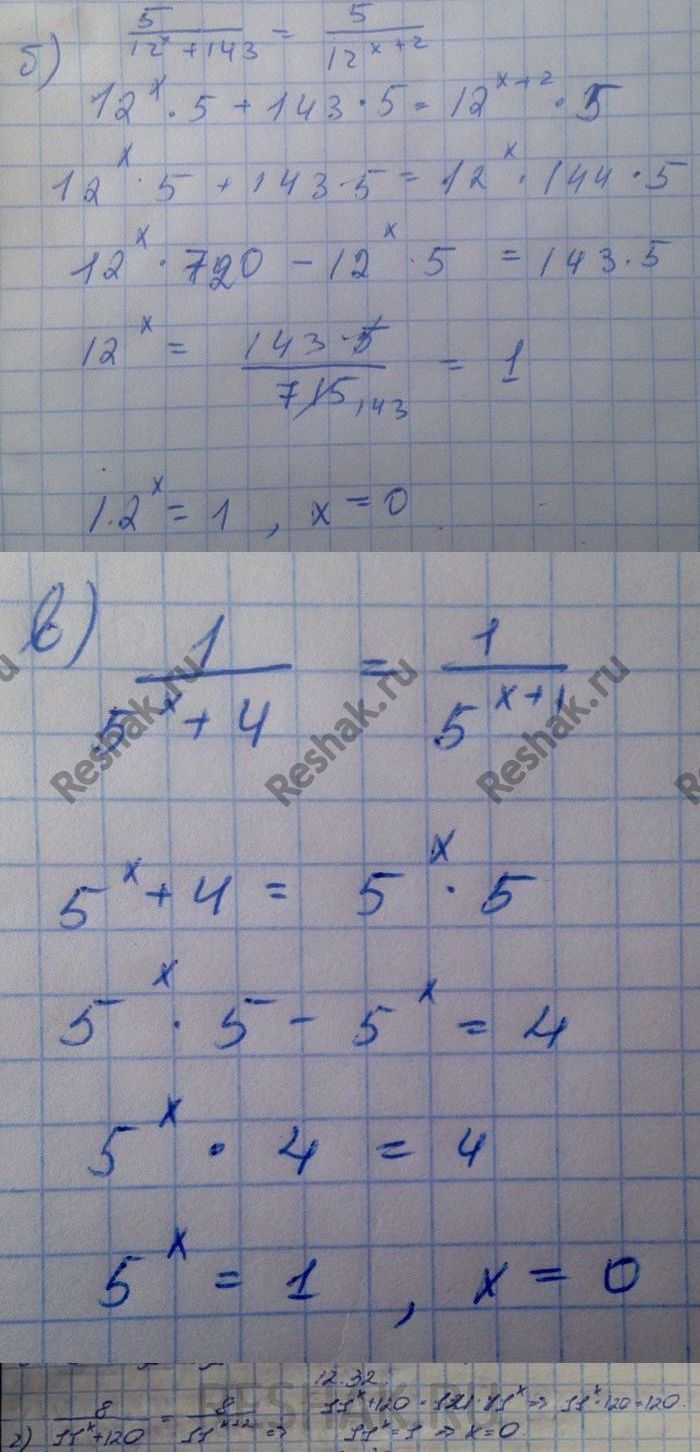 б) 5/(12^x + 143) = 5/12^(x+2)
12^x · 5 + 143 · 5 = 12^(x+2) · 5
12^x · 5 + 143 · 5 = 12^x · 144 · 5
12^x · 720 - 12^x · 5 = 143 · 5
12^x = (143 · 5)/715 143 = 1
12^x = 1 , x = 0
в) 1/(5^x + 4) = 1/5^(x+1)
Reshak.ru Reshak.ru Reshak.ru
5^x + 4 = 5^x · 5
5^x · 5 - 5^x = 4
5^x · 4 = 4
5^x = 1 , x = 0
12.32.
RESHAK.RU
г) 8/(11^x + 120) = 8/11^(x+2) => 11^x + 120 = 121 · 11^x => 11^x · 120 = 120
11^x = 1 => x = 0